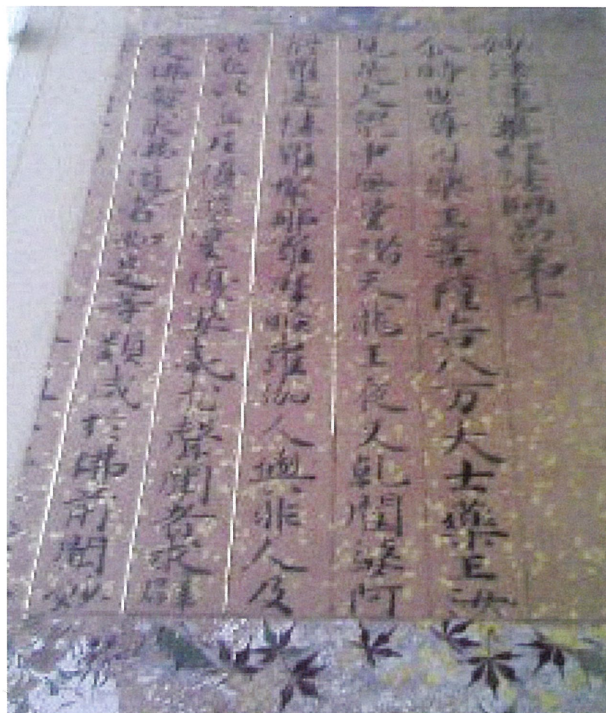 妙法蓮華經法師品第十
尒時世尊因藥王菩薩告八万大士藥王汝
見是大衆中無量諸天龍王夜叉乹闥婆阿
修羅迦樓羅緊那羅摩睺羅伽人與非人及
比丘比丘尼優婆塞優婆夷求聲聞者求辟
支佛者求佛道者如是等類咸於佛前聞妙